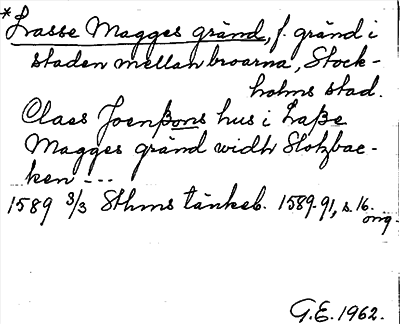 *Lasse Magges gränd, f. gränd i
staden mellan broarna, Stock-
holms stad.
Claes Joenßons hus i Laße
Magges gränd widh Slotzbac-
ken ---
1589 3/3 Sthms tänkeb. 1589-91, s. 16.
orig.
G.E. 1962.